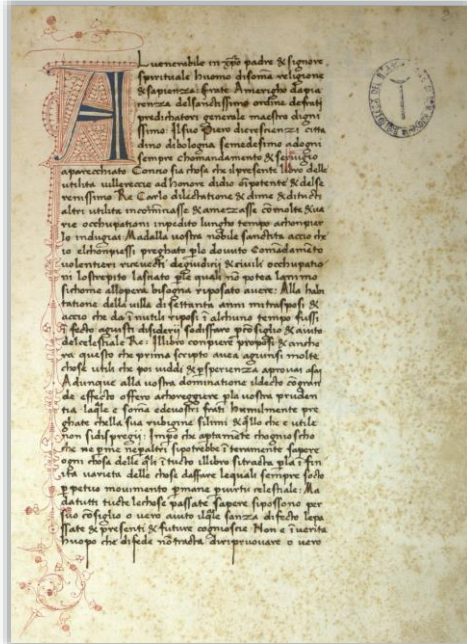 A
Luenerabile in xpo padre & signore
spirituale huomo disoma religione
& sapienza: frate Amerigho dapia
cenza delsanctissimo ordine defrati
predichatori generale maestro digni
ssimo: Ilsuo Piero dicrescienzi citta
dino dibologna semedesimo adogni
sempre chomandamento & seruigio
aparecchiato Conno sia chosa che ilpresente libro delle
utilita uillerecce ad honore didio onipotente & delse
renissimo Re Carlo dilectatione & dime & ditucti
altri utilita incominciasse & amezzasse comolte & ua
rie occhupationi inpedito lungho tempo achonpier
lo indugiai Madalla uostra nobile sanctita accio che
io elchonpiessi preghato plo douuto Comandameto
uolentieri riceuecti degiudicii & ciuili occhupatio
ni lostrepito lasciato ple quali no potea lanimo
sichome allopera bisogna riposato auere: Alla habi
tatione della uilla disettanta anni mitrasposi &
accio che da inutili riposi i alchuno tempo fussi
disiderii sodisfare & aiuto
delcelestiale Re: Illibro conpiere proposi & ancho
ra questo che prima scripto auea agiunsi molte
chose utili che poi uiddi & psperienza aprouai asai
Adunque alla uostra dominatione ildecto
de effecto offero achoreggiere pla uostra pruden
tia & soma edeuostri frati humilmente pre
ghate chella sua rubigine silimi & qllo che e utile
non sidispregi: Impo che aptamete chognoscho
che ne pme nepaltri sipotrebbe iteramente sapere
ogni chosa delle qli i tucto illibro sitracta pla i fin
ita uarieta delle chose daffare lequali sempre socto
ppetuo mouimento pmane puirtu celestiale: Ma
datutti tucte lechose passate sapere sipossono per
suo consiglio o uero aiuto ilqle sanza difecto lepa
ssate & presenti & future cognoscie Non e i uerita
huopo che difede notracta diripruouare o uero